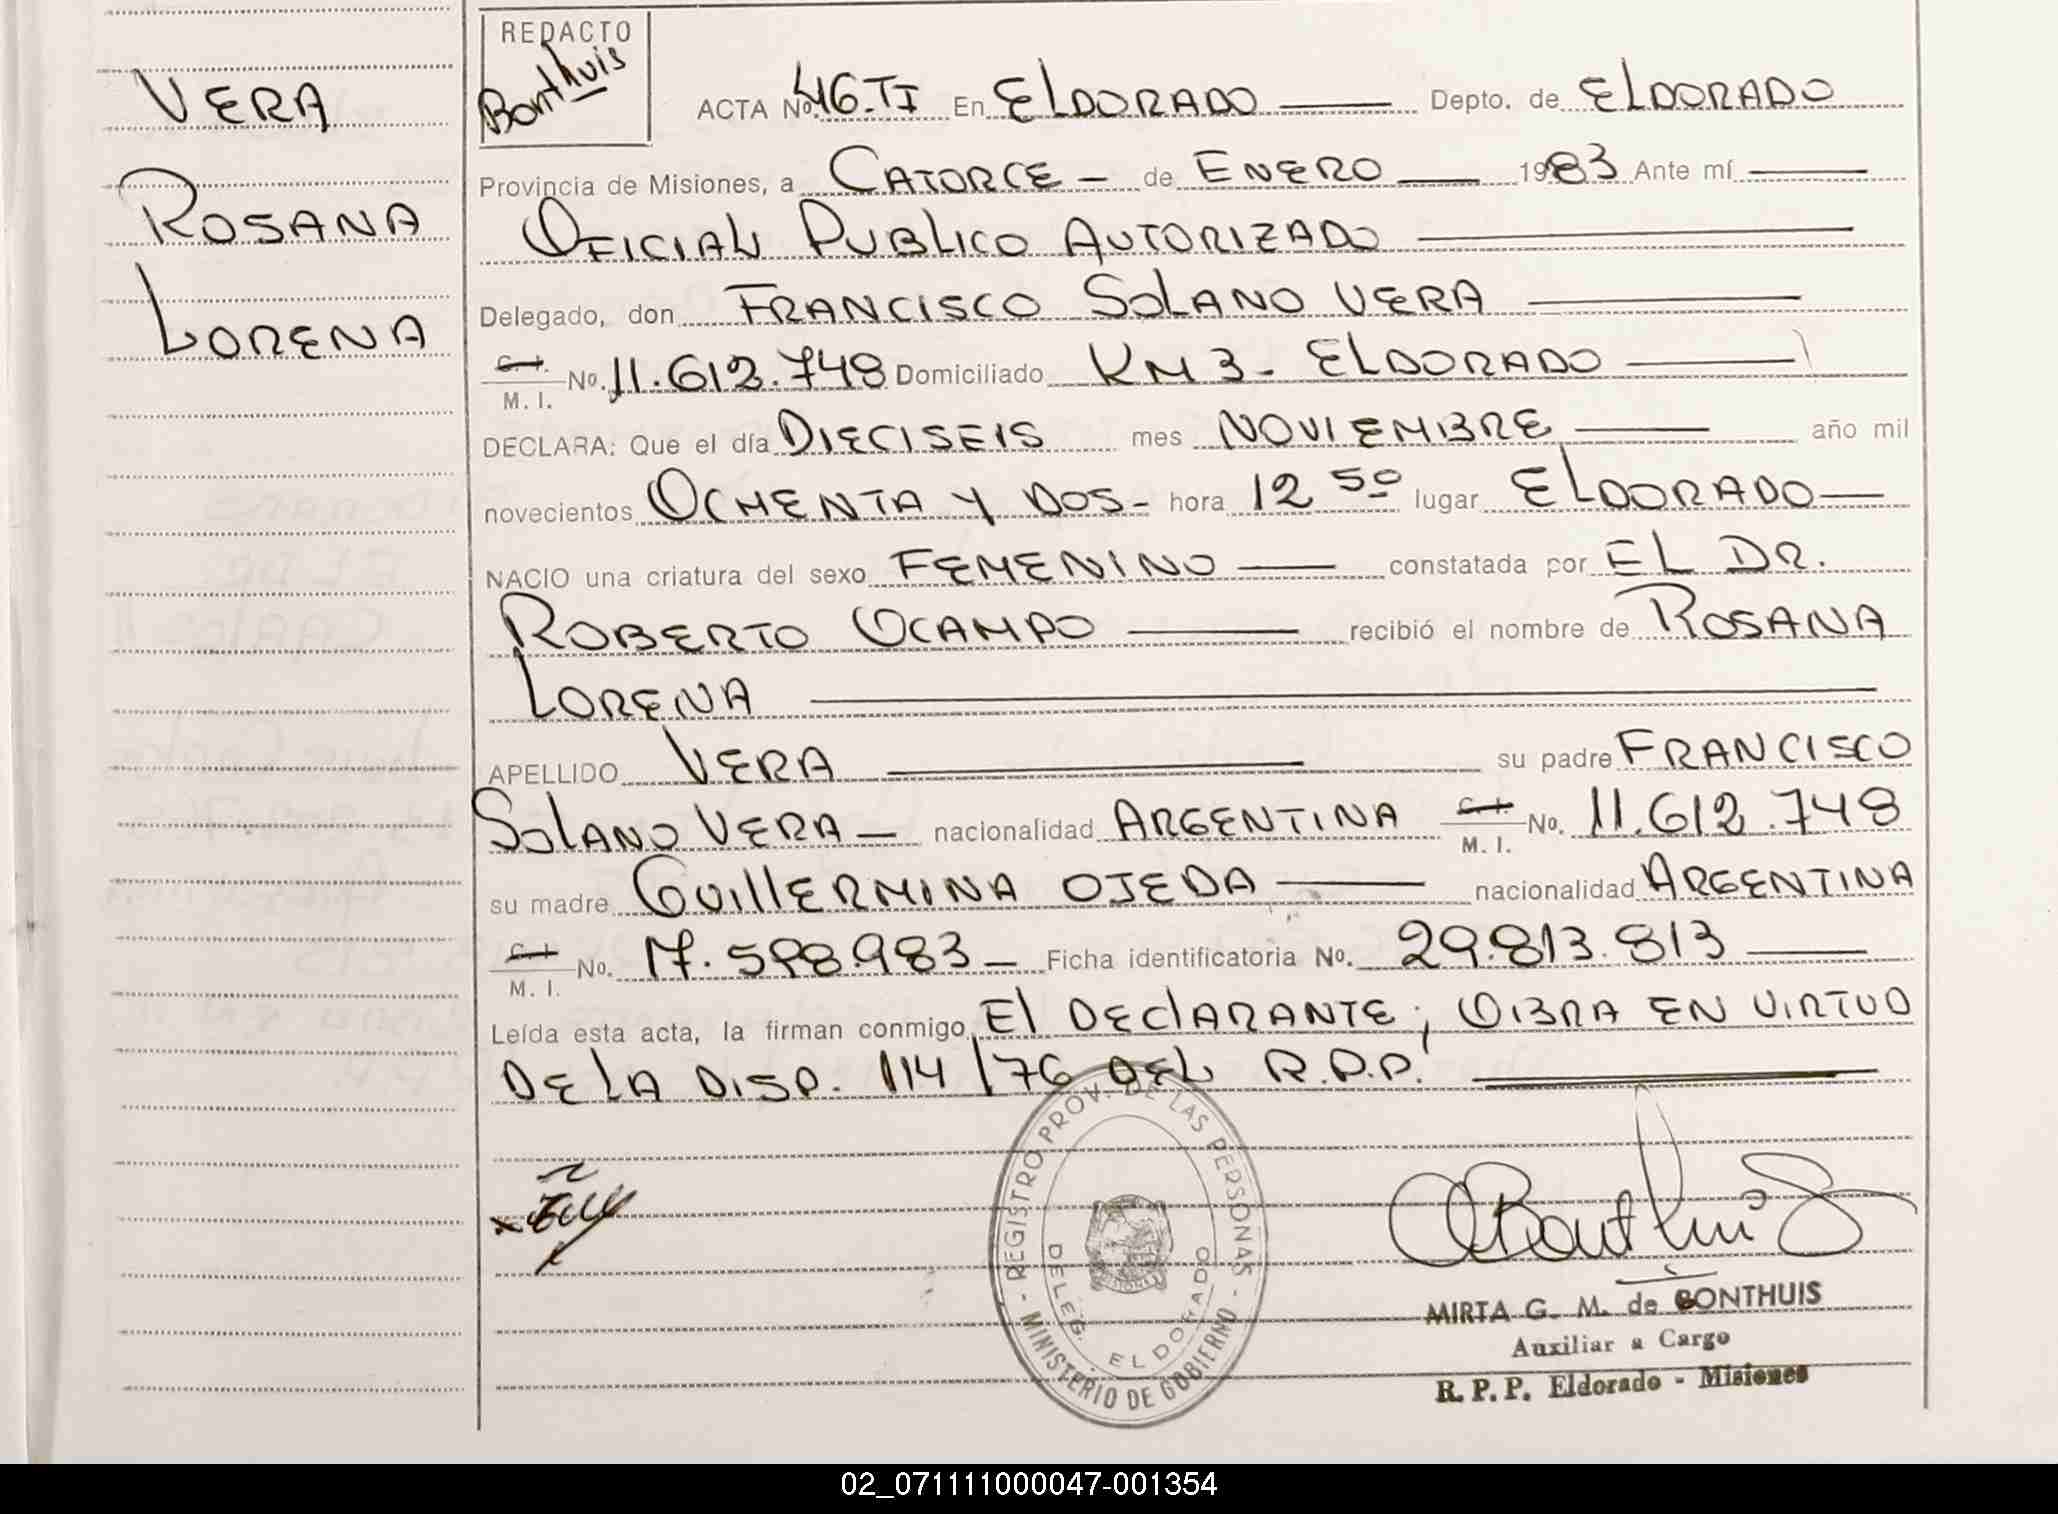 VERA
ROSANA
LORENA
REDACTO
Bonthuis
ACTA No. 46.TI En ELDORADO Depto. de ELDORADO
Provincia de Misiones, a CATORCE - de ENERO 1983 Ante mí
OFICIAL PUBLICO AUTORIZADO
Delegado, don FRANCISCO SOLANO VERA
C.I. M. I. No. 11.612.748 Domiciliado KM 3 - ELDORADO
DECLARA: Que el día DIECISEIS mes NOVIEMBRE año mil
novecientos OCHENTA Y DOS - hora 12 50 lugar ELDORADO
NACIO una criatura del sexo FEMENINO constatada por EL DR.
ROBERTO OCAMPO recibió el nombre de ROSANA
LORENA
APELLIDO VERA su padre FRANCISCO
SOLANO VERA - nacionalidad ARGENTINA C.I. M. I. No. 11.612.748
su madre GUILLERMINA OJEDA nacionalidad ARGENTINA
C.I. M. I. No. 17.598.983 - Ficha identificatoria No. 29.813.813
Leída esta acta, la firman conmigo El DEClARANTE; OBRA EN VIRTUD
DE LA DISP. 114/76 DEL R.P.P.
- REGISTRO PROV. DE LAS PERSONAS -
MINISTERIO DE GOBIERNO
DELEG. ELDORADO
MISIONES
Bonthuis
MIRTA G. M. de BONTHUIS
Auxiliar a Cargo
R. P. P. Eldorado - Misiones
02_071111000047-001354